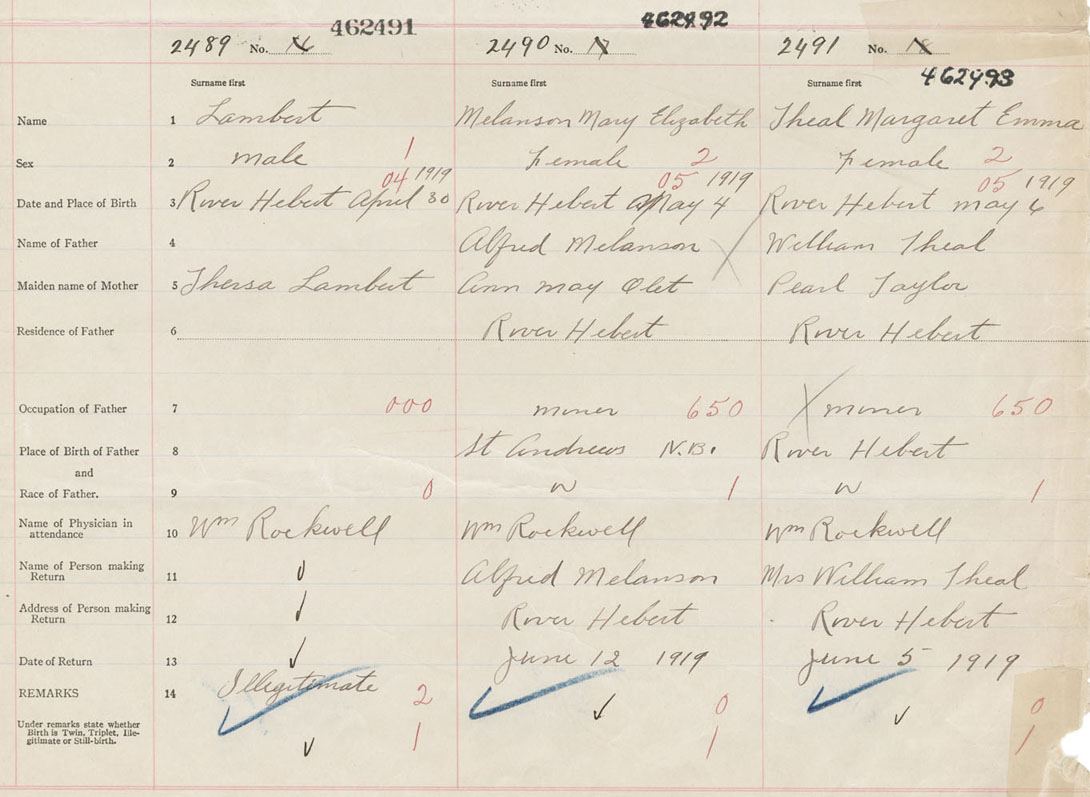 462491 462492
2489 No. 14 2490 No. 17 2491 No.
462493
Surname first Surname first Surname first
Name 1 Lambert Melanson Mary Elizabeth Theal Margaret Emma
Sex 2 male 1 Female 2 Female 2
04 1919 05 1919 05 1919
Date and Place of Birth 3 River Hebert April 30 River Hebert May 4 River Hebert may 6
Name of Father 4 Alfred Melanson William Theal
Maiden name of Mother 5 Thersa Lambert Ann may Olet Pearl Taylor
Residence of Father 6 River Hebert River Hebert
Occupation of Father 7 000 miner 650 miner 650
Place of Birth of Father 8 St Andrews N.B. River Hebert
and
Race of Father. 9 0 W 1 W 1
Name of Physician in
attendance 10 Wm Rockwell Wm Rockwell Wm Rockwell
Name of Person making
Return 11 Alfred Melanson Mrs William Theal
Address of Person making
Return 12 River Hebert River Hebert
Date of Return 13 June 12 1919 June 5 1919
REMARKS 14 Illegitimate 2 0 0
Under remarks state whether
Birth is Twin, Triplet, Ille-
gitimate or Still-birth. 1 1 1